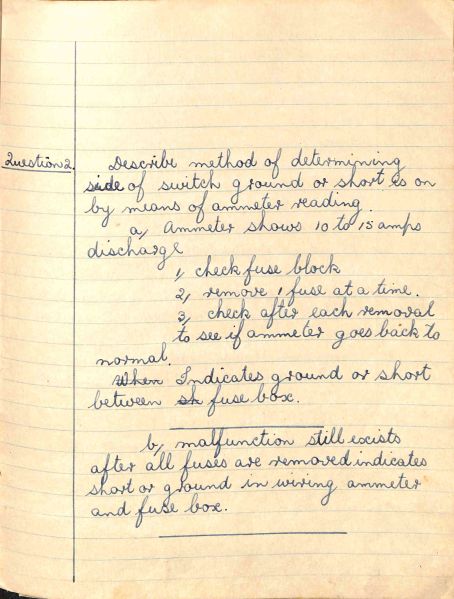 Question 2. Describe method of determining
side of switch ground or short is on
by means of ammeter reading.
a, Ammeter shows 10 to 15 amps
discharge
1, check fuse block
2, remove 1 fuse at a time.
3, check after each removal
to see if ammeter goes back to
normal.
When Indicates ground or short
between sh fuse box.
b, malfunction still excists
after all fuses are removed indicates
short or ground in wiring ammeter
and fuse box.